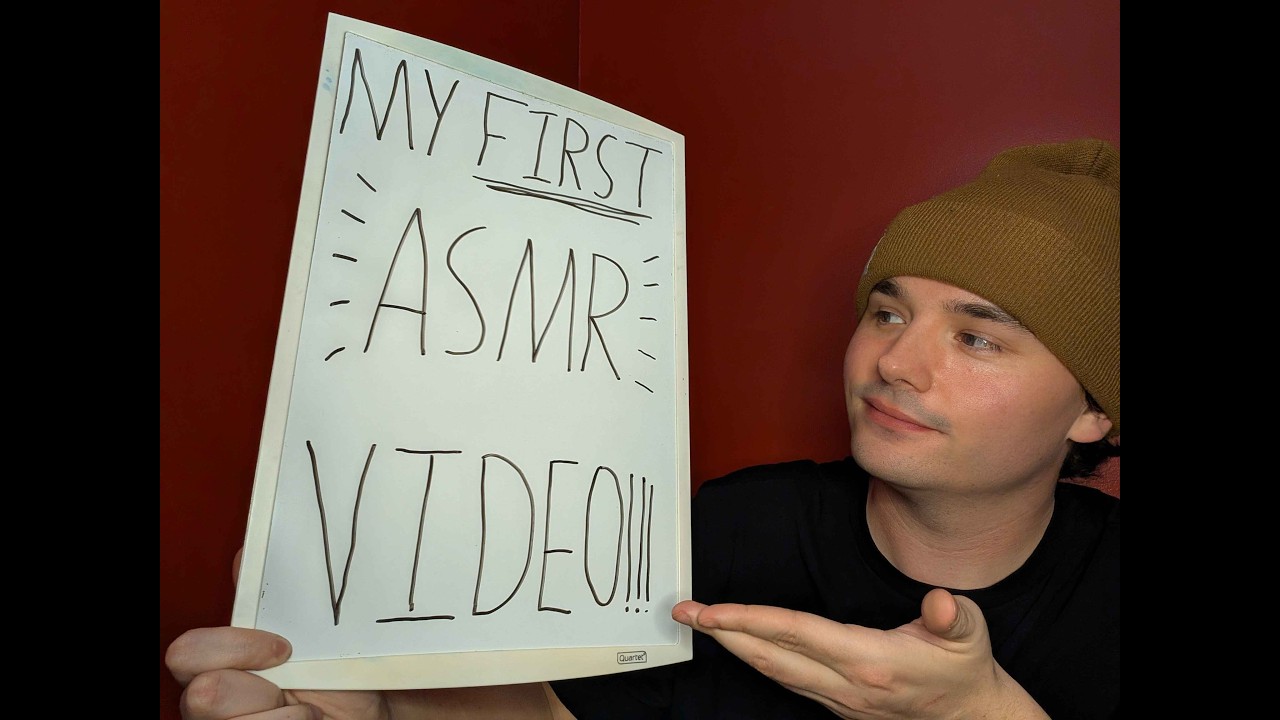 MY FIRST
ASMR
VIDEO!!!
Quartet